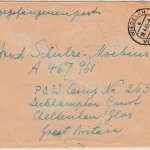 Kriegsgefangenenpost
Schulze-Moebius
A 467 961
P.O.W. Camp No 263
Leckhampton Court
Cheltenham / Glos
Great Britain